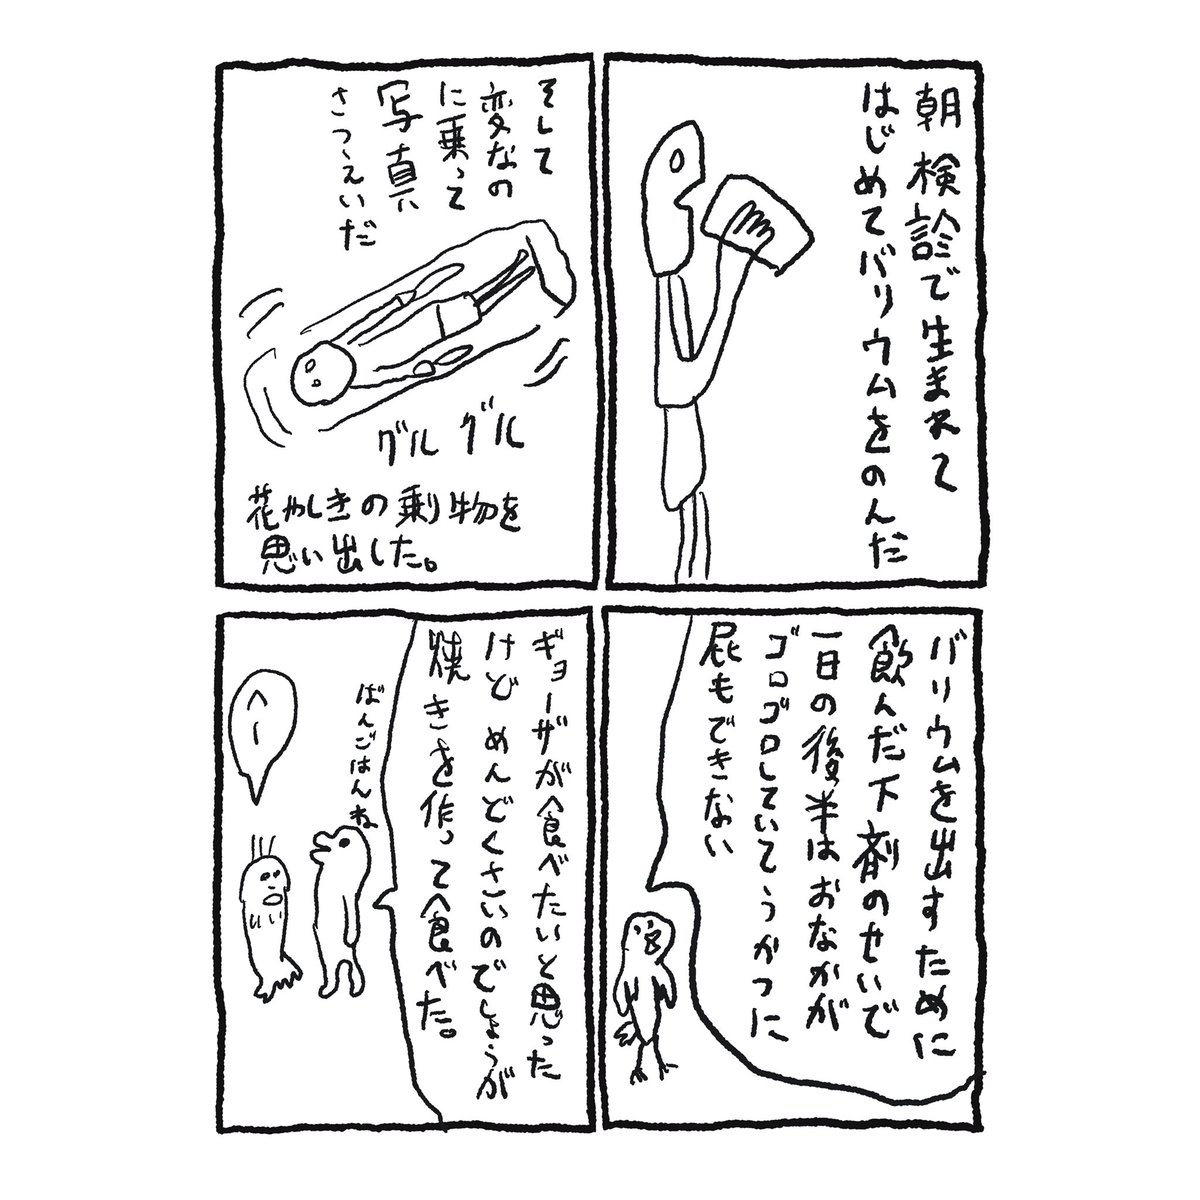 朝検診で生まれて
はじめてバリウムをのんだ
そして
変なの
に乗って
写真
さつえいだ
グルグル
花やしきの乗物を
思い出した。
バリウムを出すために
飲んだ下剤のせいで
一日の後半はおなかが
ゴロゴロしていてうかつに
屁もできない
ギョーザが食べたいと思った
けどめんどくさいのでしょうが
焼きを作って食べた。
ばんごはんね
へー